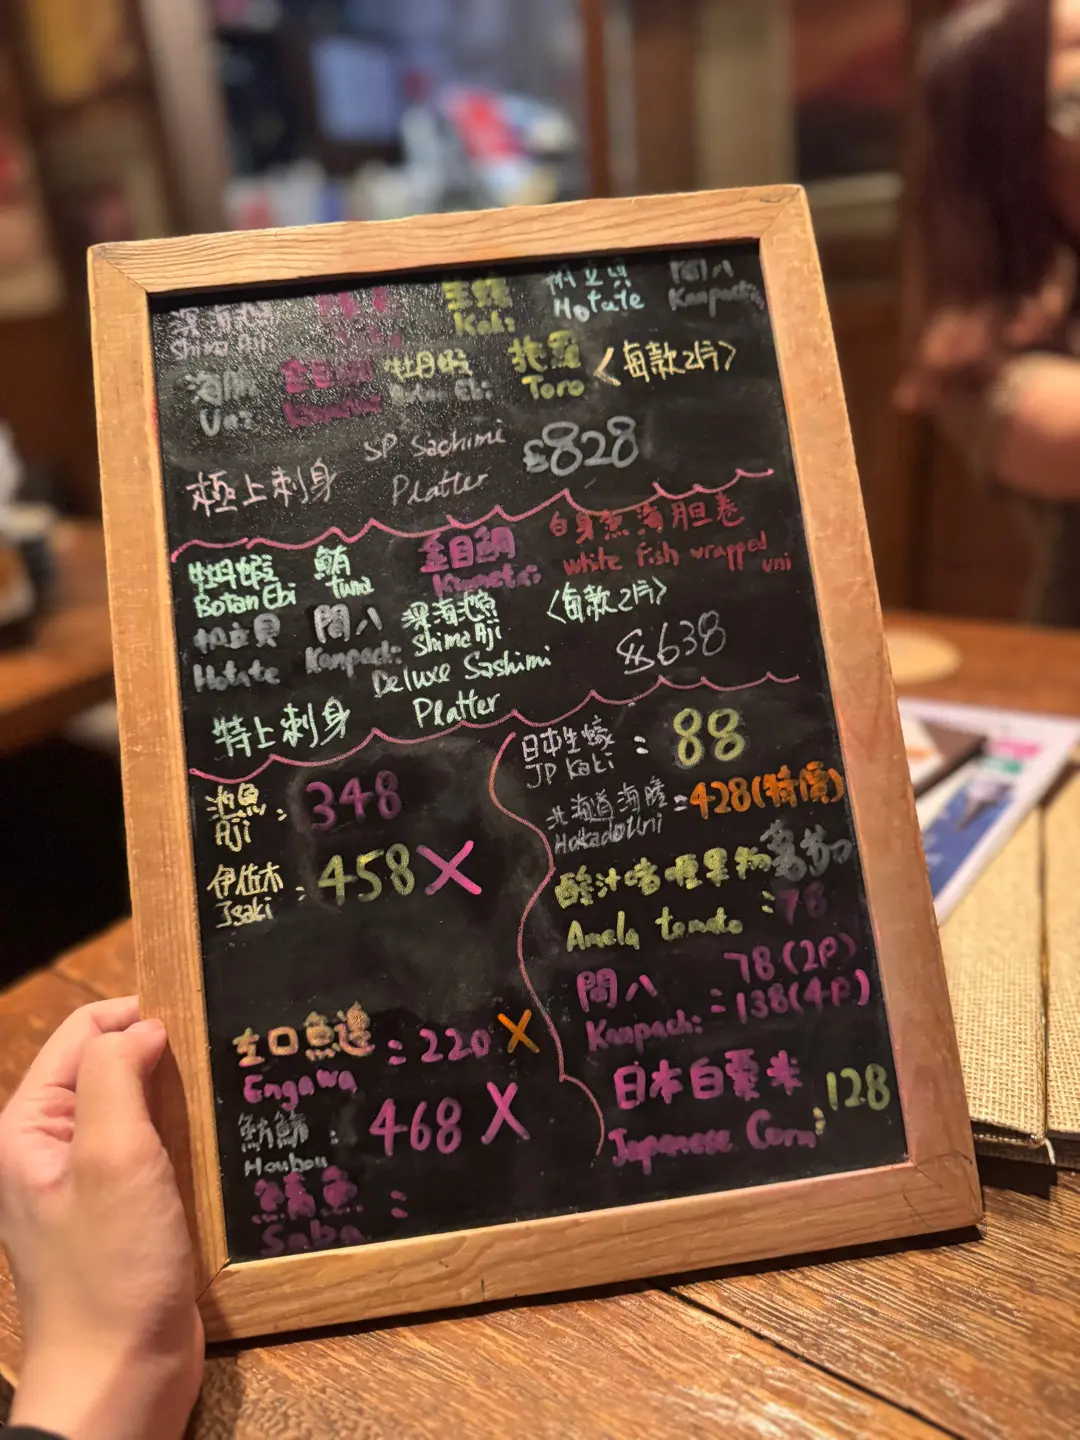 生蠔 帆立貝 間八
Shima Aji Kaki Hotate Kanpachi
海膽 金目鯛 牡丹蝦 北寄 〈每款2片〉
Uni Botan Ebi Toro
極上刺身 SP Sachimi Platter $828
牡丹蝦 鮪 金目鯛 白身魚海胆卷
Botan Ebi tuna white fish wrapped uni
帆立貝 間八 深海池魚 〈每款2片〉
Hotate Kanpachi Shima Aji
特上刺身 Deluxe Sashimi Platter $638
池魚 : 348
Aji
伊佐木 : 458 X
Isaki
左口魚邊 : 220 X
Engawa
: 468 X
Houbou
鯖魚 :
Saba
日本生蠔 : 88
JP Kaki
北海道海膽 : 428(特價)
Hokkado Uni
Amela tomato : 78
間八 : 78(2P)
Kanpachi 138(4P)
日本白粟米 128
Japanese Corn :